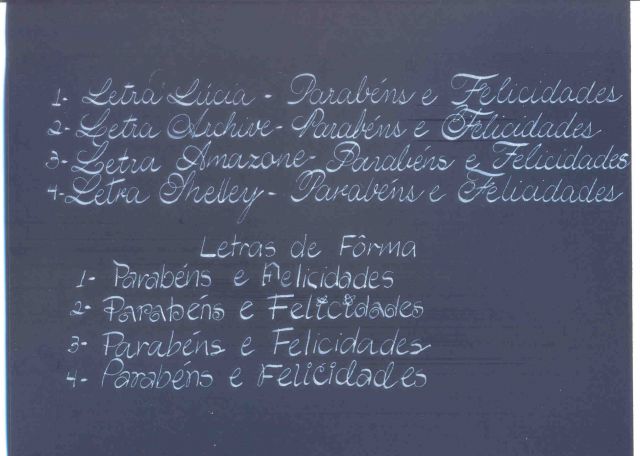 1- Letra Lúcia - Parabéns e Felicidades
2- Letra Archive - Parabéns e Felicidades
3- Letra Amazone - Parabéns e Felicidades
4- Letra Shelley - Parabéns e Felicidades
Letras de Fôrma
1- Parabéns e Felicidades
2- Parabéns e Felicidades
3- Parabéns e Felicidades
4- Parabéns e Felicidades